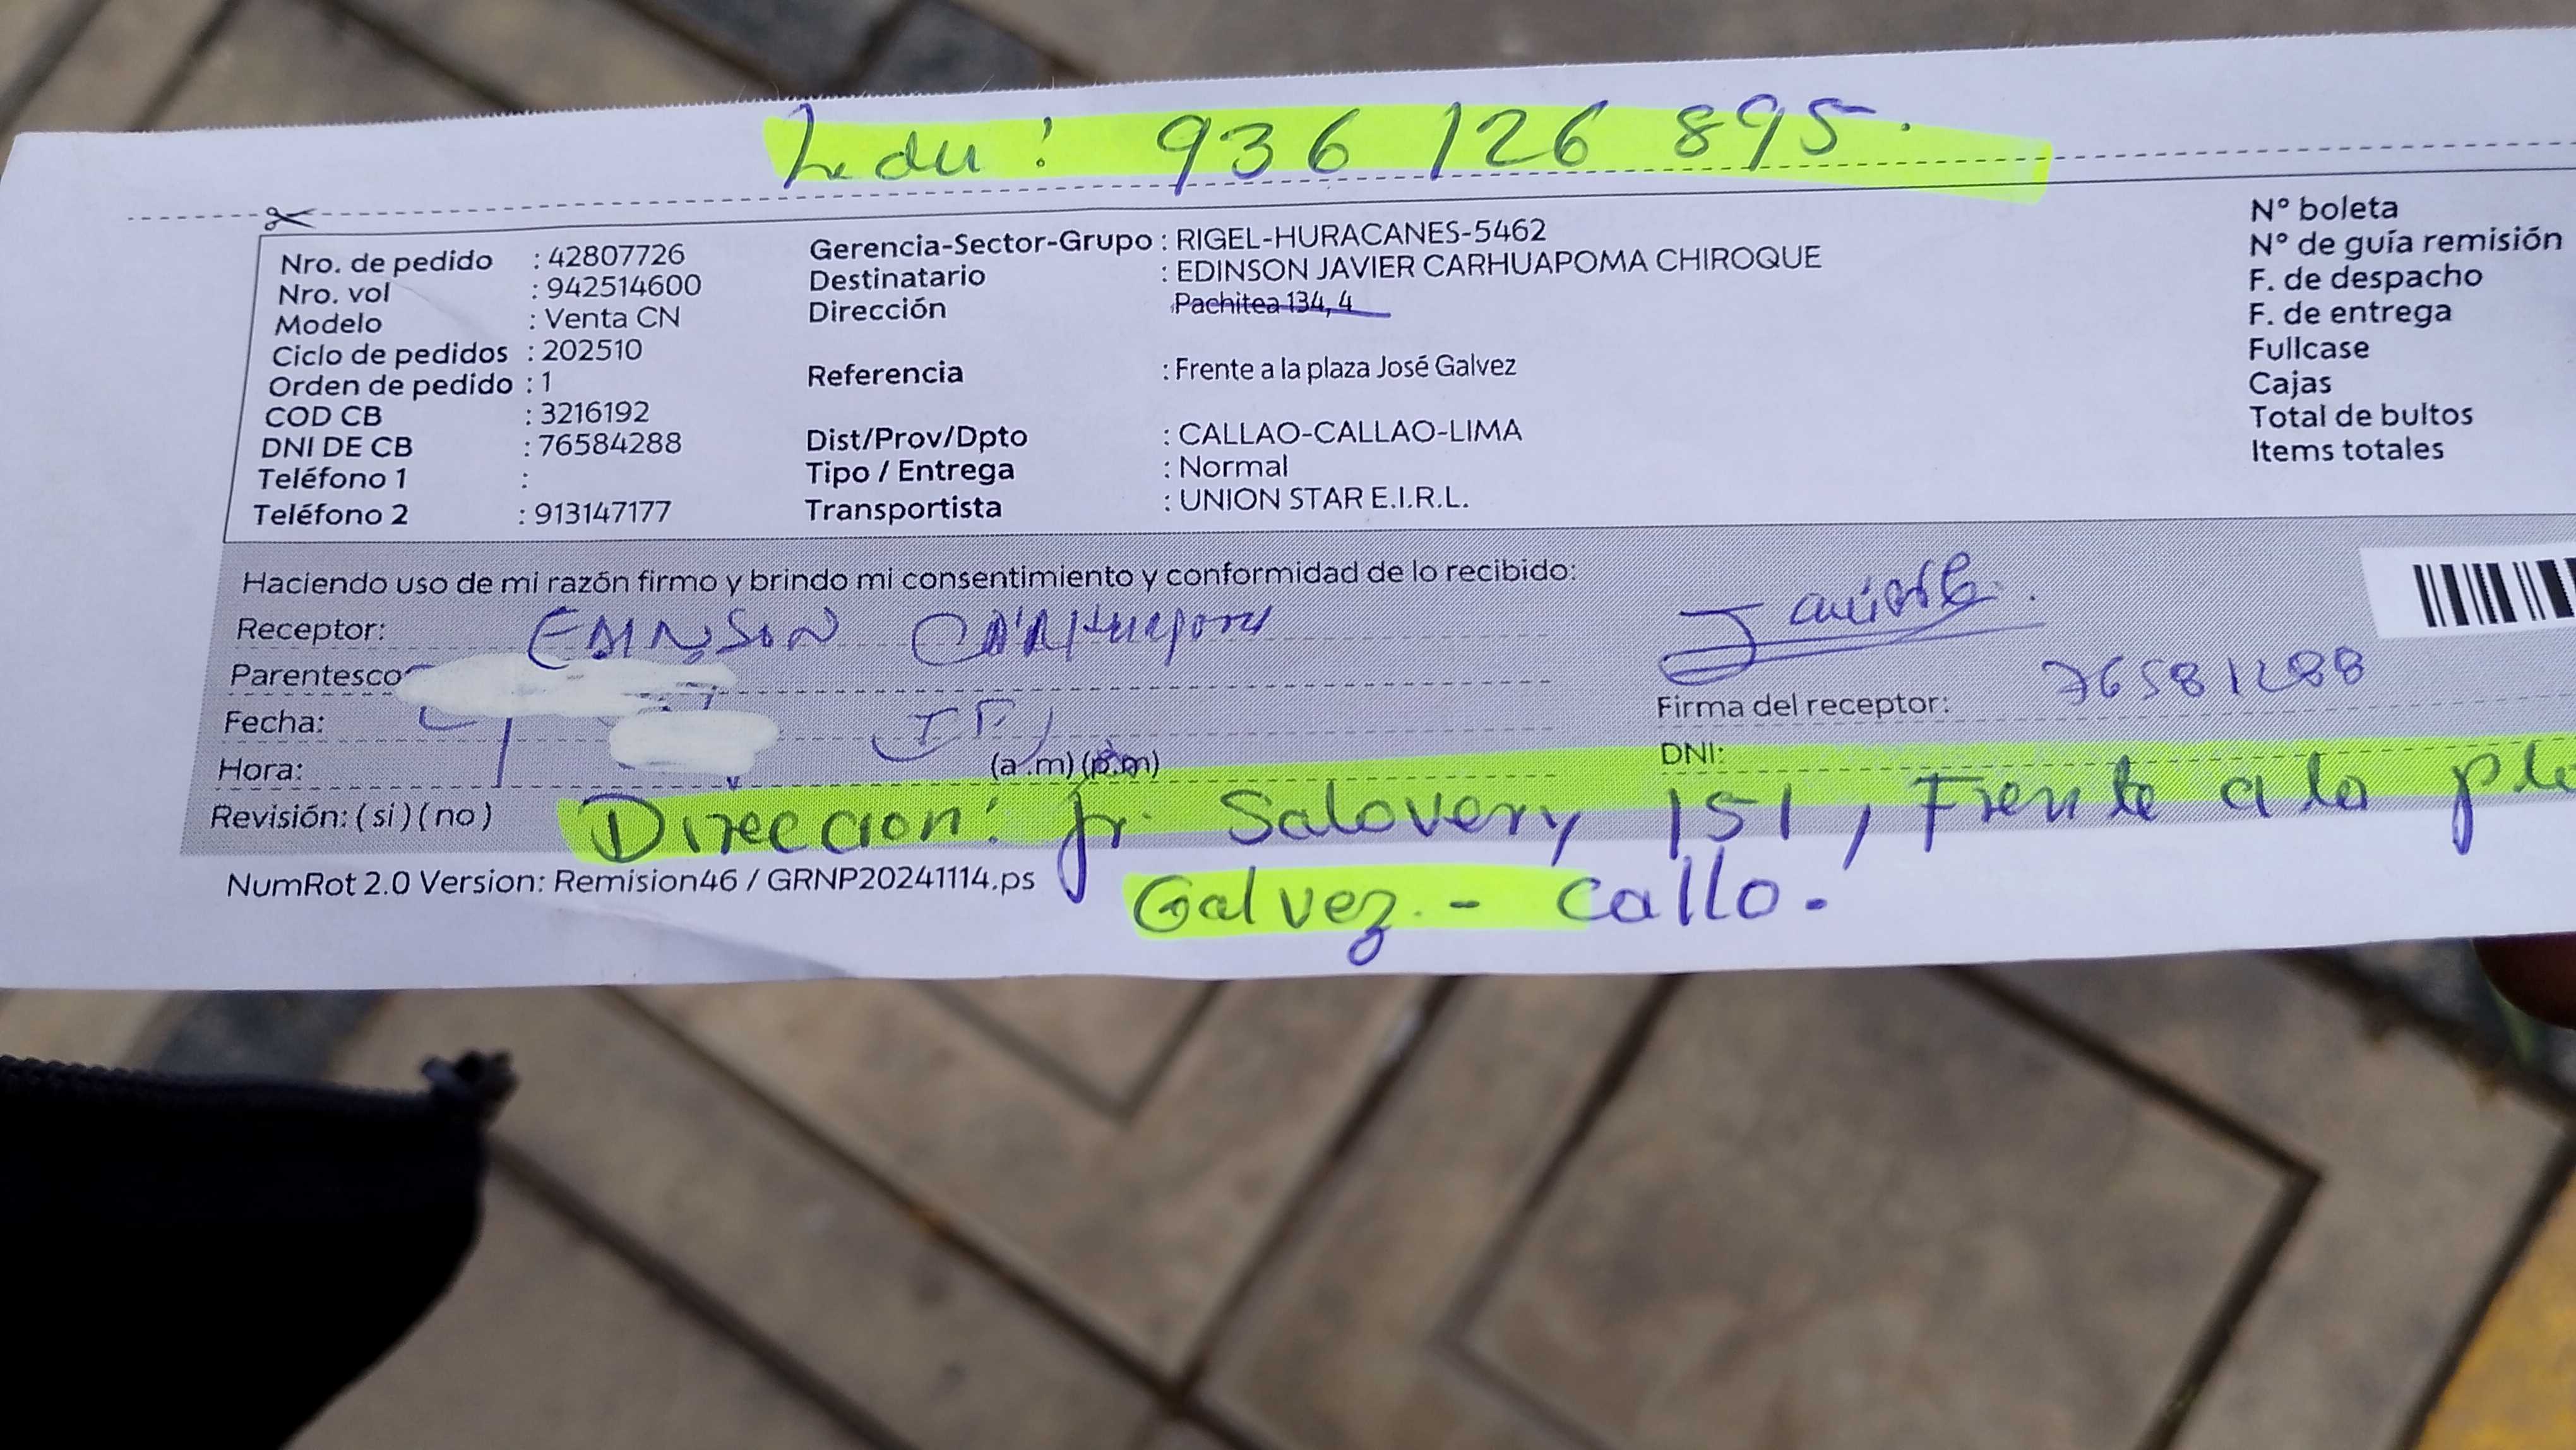 Ledu: 936 126 895.
Nro. de pedido : 42807726
Nro. vol : 942514600
Modelo : Venta CN
Ciclo de pedidos : 202510
Orden de pedido : 1
COD CB : 3216192
DNI DE CB : 76584288
Teléfono 1 :
Teléfono 2 : 913147177
Gerencia-Sector-Grupo : RIGEL-HURACANES-5462
Destinatario : EDINSON JAVIER CARHUAPOMA CHIROQUE
Dirección Pachitea 134, 4
Referencia : Frente a la plaza José Galvez
Dist/Prov/Dpto : CALLAO-CALLAO-LIMA
Tipo / Entrega : Normal
Transportista : UNION STAR E.I.R.L.
N° boleta
N° de guía remisión
F. de despacho
F. de entrega
Fullcase
Cajas
Total de bultos
Items totales
Haciendo uso de mi razón firmo y brindo mi consentimiento y conformidad de lo recibido:
Receptor: EDINSON
Parentesco
Fecha:
Hora: (a.m) (p.m)
Revisión: (si) (no)
Firma del receptor:
DNI:
Direccion: Jr. Salovery 151, Frente a la pla
Galvez - Callo.
NumRot 2.0 Version: Remision46 / GRNP20241114.ps